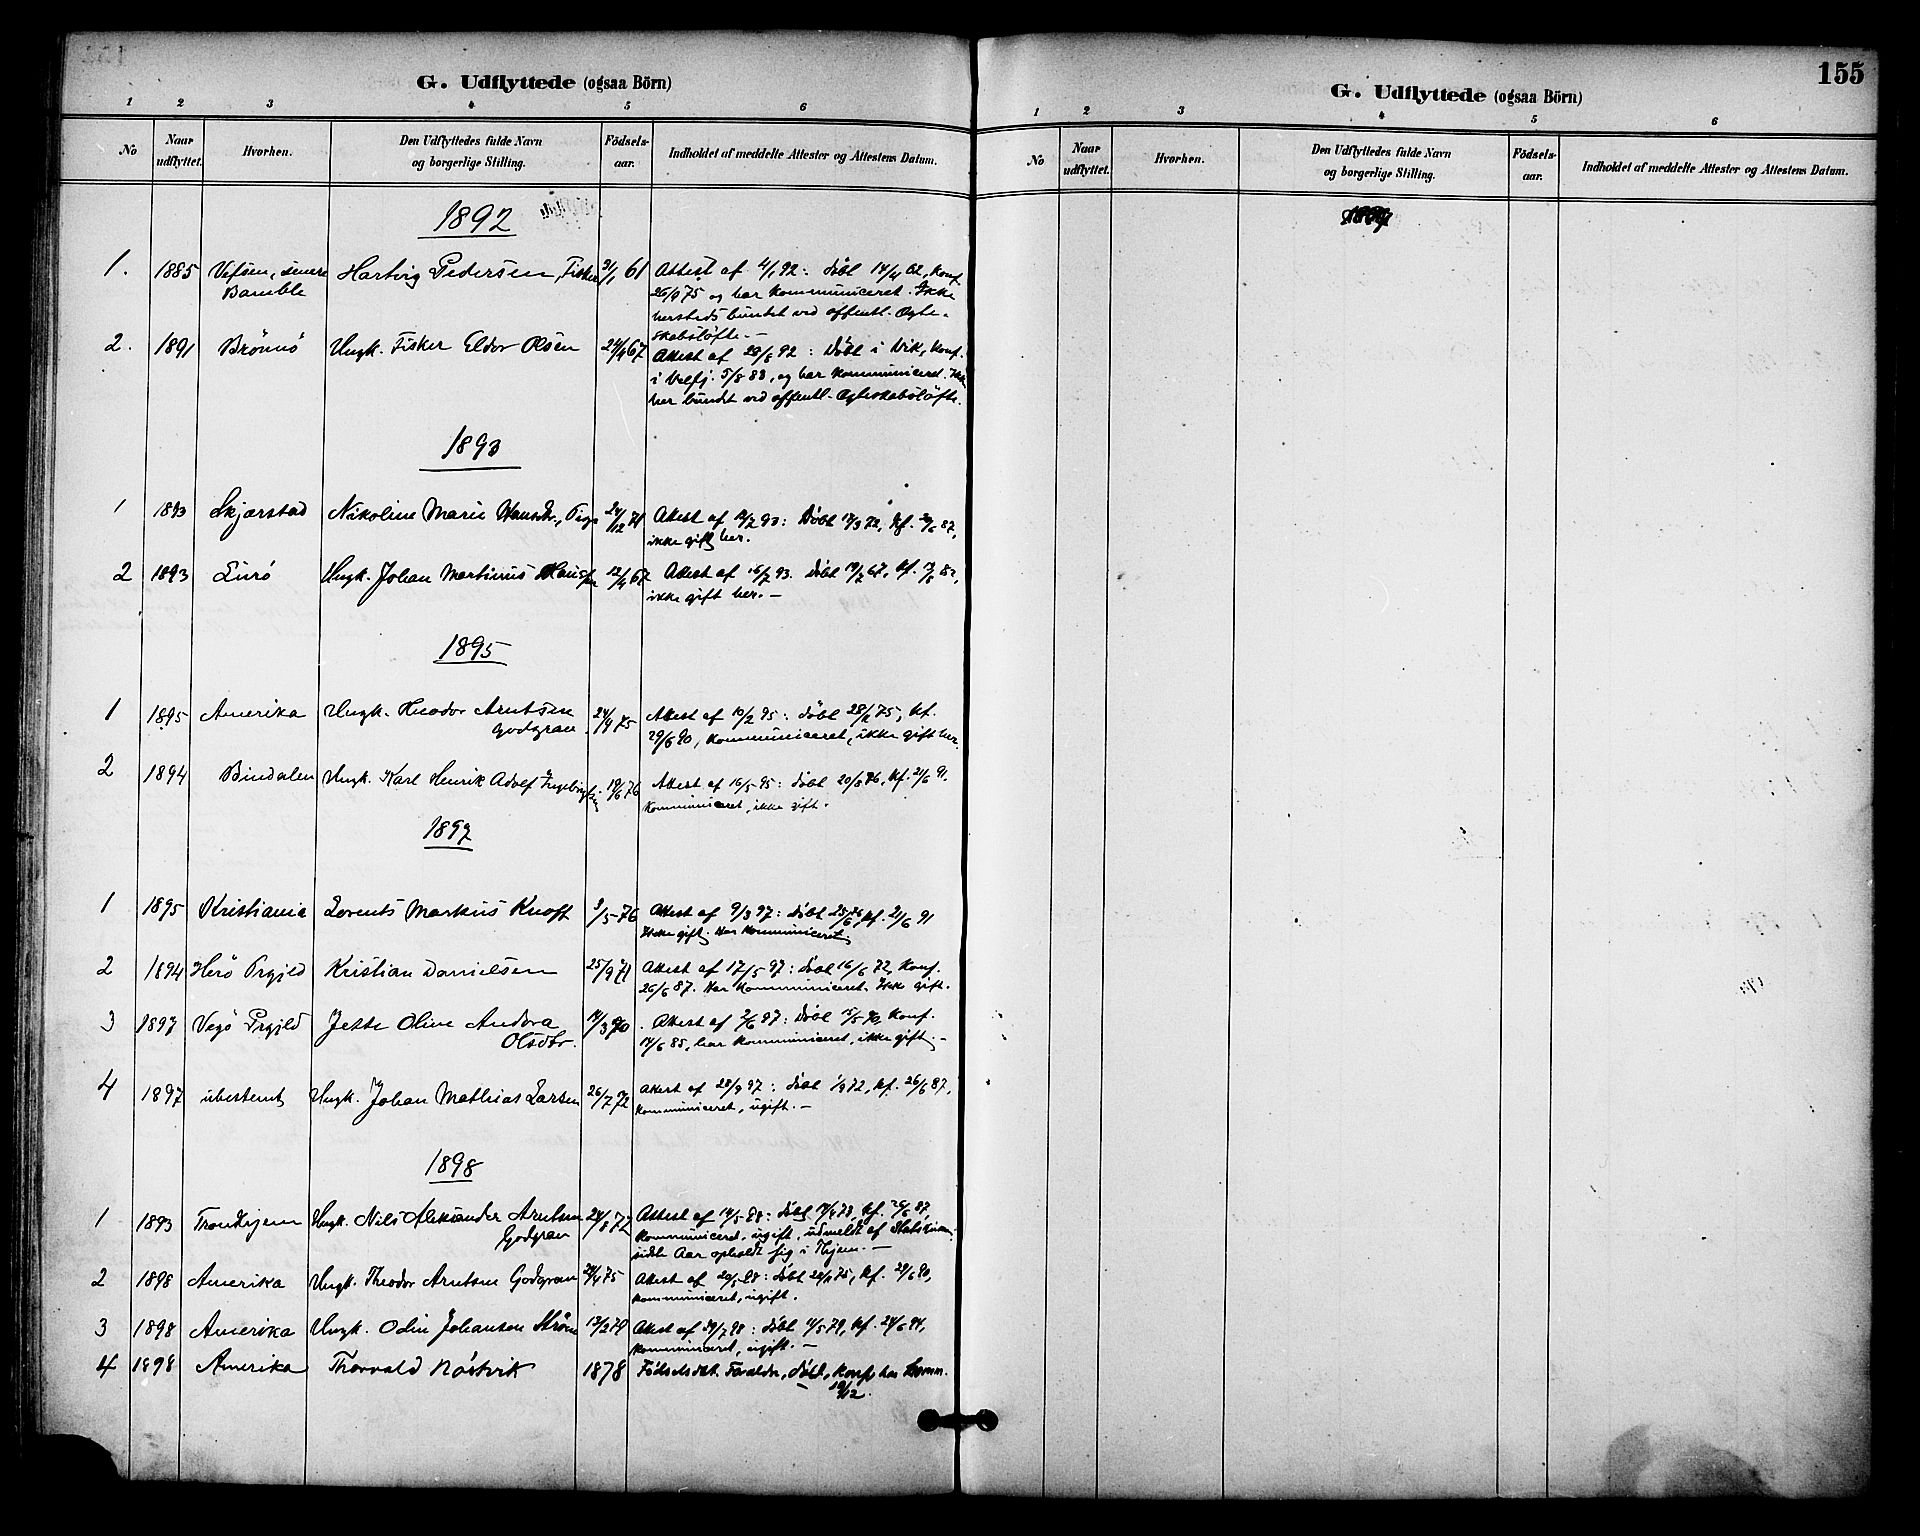 G. Udflyttede (ogsaa Börn)
1 2 3 4 5 6
No
Naar udflyttet.
Hvorhen.
Den Udflyttedes fulde Navn
og borgerlige Stilling.
Födsels-
aar.
Indholdet af meddelte Attester og Attestens Datum.
1892
1. 1885 Vefsen, senere Hartvig Pedersen, Fisker 31/1 61 Attest af 4/1 92: döbt 14/4 62, Konf.
Bamble 26/9 75 og har kommuniceret. Ikke
hersteds bundet ved offentl. Ægte-
skabslöfte. —
2. 1891 Brönnö Ungk. Fisker Eldor Olsen 24/4 67 Attest af 28/6 92: Döbt i Vik, Konf.
i Velfj. 5/8 83, og har kommuniceret. Ikke
her bundet ved offentl. Ægteskabslöfte.
1893
1 1893 Skjærstad Nikoline Marie Hansdr., Pige 24/12 71 Attest af 14/2 93: Döbt 17/3 72, kf. 87,
ikke gift her.
2 1893 Lurö Ungk. Johan Martinus Hansen 12/4 67 Attest af 16/7 93. Döbt 19/7 67, kf. 82,
ikke gift her. —
1895
1 1895 Amerika Ungk. Theodor Arntsen 24/4 75 Attest af 10/2 95: döbt 28/ 75, kf.
Godgran 29/6 90, kommuniceret, ikke gift her.
2 1894 Bindalen Ungk. Karl Henrik Adolf Ingebrigtsen 19/6 76 Attest af 16/5 95: döbt 20/8 76, kf. 21/6 91.
Kommuniceret, ikke gift.
1897
1 1895 Kristiania Lorents Markus Knoft 3/5 76 Attest af 9/3 97: Döbt 25/6 76, kf. 21/6 91
Ikke gift. Har kommuniceret.
2 1894 Herö Prgjld Kristian Danielsen 25/9 71 Attest af 17/5 97: döbt 16/6 72, Konf.
26/6 87. Har kommuniceret. Ikke gift.
3 1897 Vegö Prgjld Jette Oline Andora 14/3 70 Attest af 2/6 97: Döbt 15/5 70, Konf.
Olsdtr. 14/6 85, har kommuniceret, ikke gift. —
4 1897 ubestemt Ungk. Johan Mathias Larsen 26/7 72 Attest af 28/9 97: döbt 1/9 72, kf. 26/6 87,
kommuniceret, ugift. —
1898
1 1893 Trondhjem Ungk. Nils Aleksander Arntsen 24/8 72 Attest af 14/5 98: döbt kf. 26/6 87,
Godgran kommuniceret, ugift, udmeldt af Statskirken,
sidste Aar opholdt sig i Thjem. —
2 1898 Amerika Ungk. Theodor Arntsen Godgran 24/4 75 Attest af 20/5 98: döbt 75, kf. 29/6 90,
kommuniceret, ugift.
3 1898 Amerika Ungk. Odin Johansen Ström 12/2 79 Attest af 29/7 98: döbt 4/5 79, kf. 24/6 94,
kommuniceret, ugift. —
4 1898 Amerika Thorvald Nöstvik 1878 Födselsdat. Forældre, döbt, konf, har komm.
19/12.
155
G. Udflyttede (ogsaa Börn)
1 2 3 4 5 6
No
Naar udflyttet.
Hvorhen.
Den Udflyttedes fulde Navn
og borgerlige Stilling.
Födsels-
aar.
Indholdet af meddelte Attester og Attestens Datum.